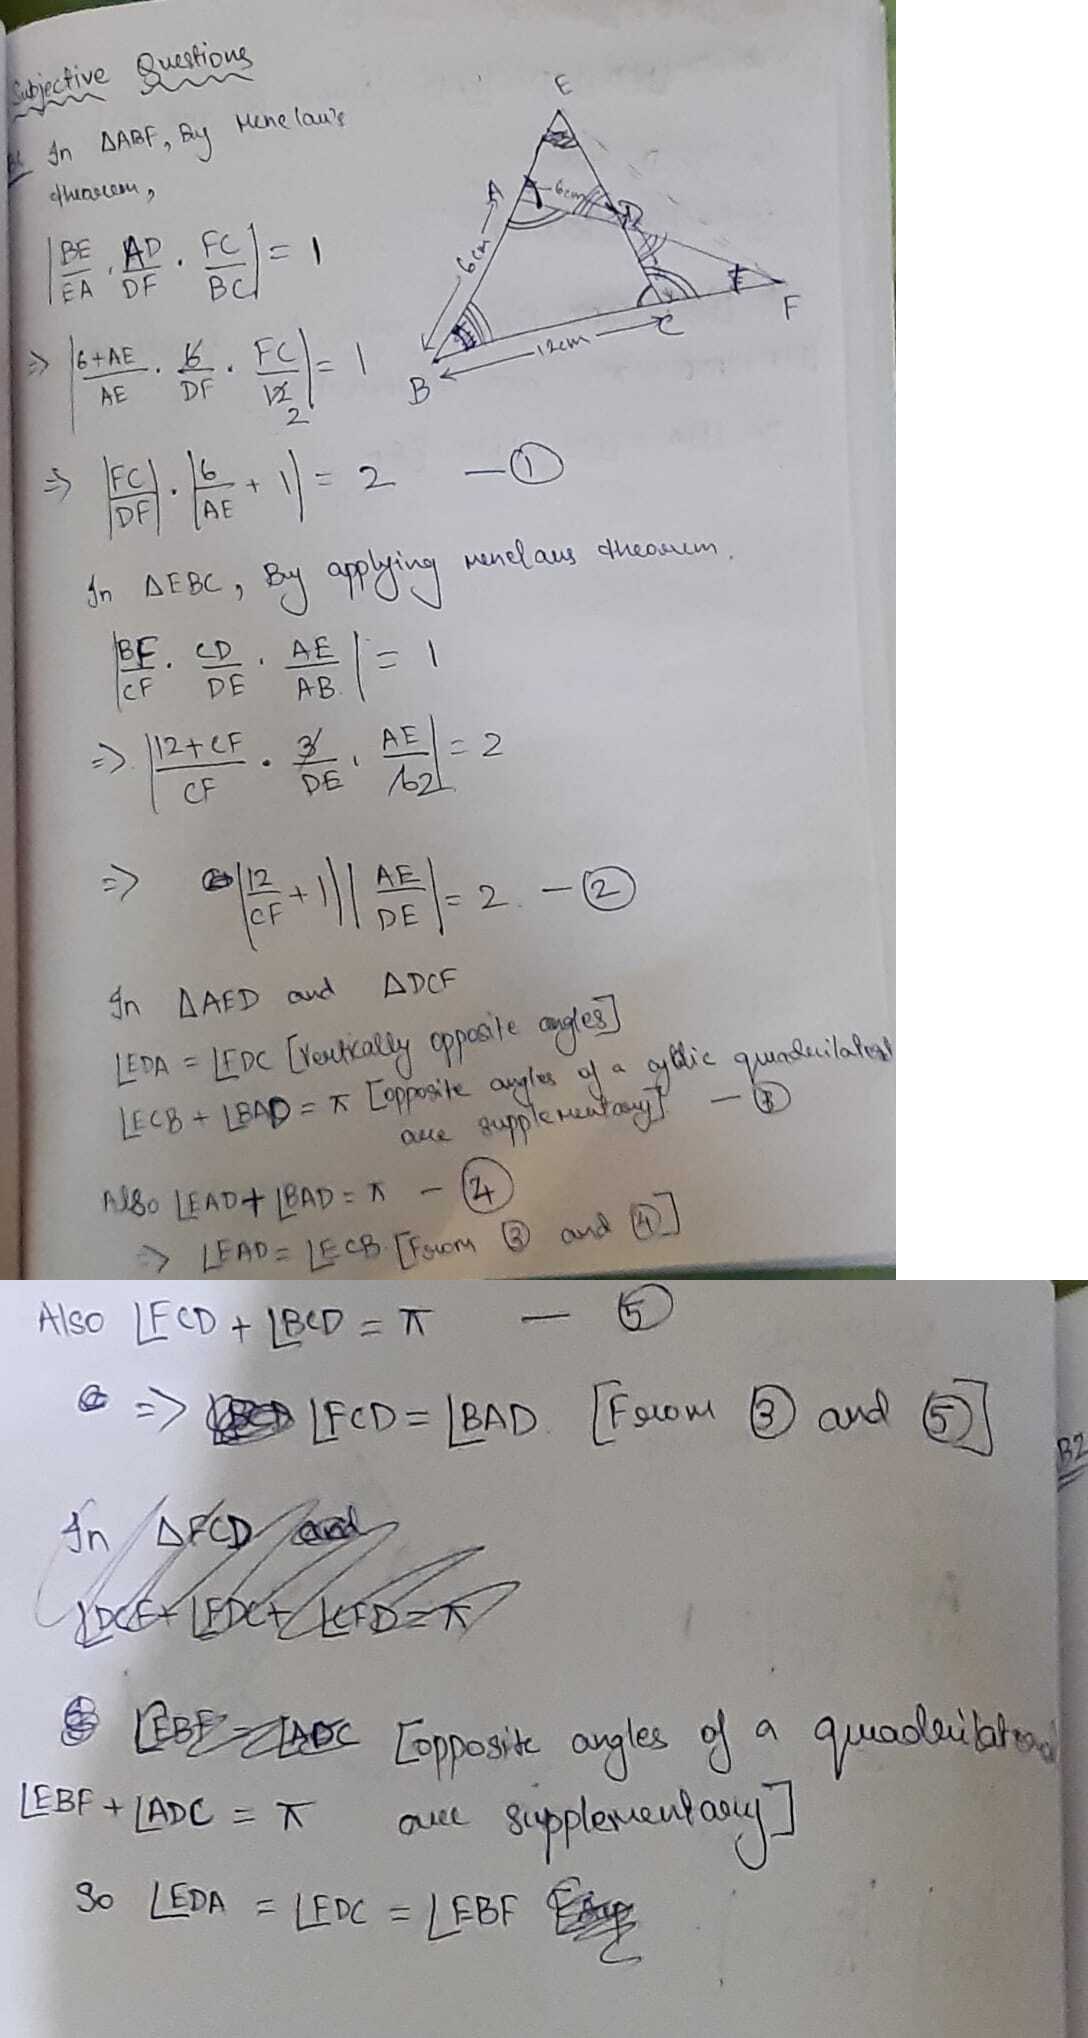 Subjective Questions
In ΔABF, By Menelau's
theorem,
|BE/EA . AD/DF . FC/BC| = 1
⇒ |6+AE/AE . 6/DF . FC/12 2| = 1
⇒ |FC/DF| . |6/AE + 1| = 2 — ①
E
A
6cm
D
6cm
F
C
12cm
B
In ΔEBC, By applying menelaus theorem.
|BF/CF . CD/DE . AE/AB.| = 1
⇒ |12+CF/CF . 3/DE . AE/6 2| = 2
⇒ |12/CF + 1| |AE/DE| = 2. — ②
In ΔAED and ΔDCF
∠EDA = ∠FDC [Vertically opposite angles]
∠ECB + ∠BAD = π [opposite angles of a cyclic quadrilateral
are supplementary] — ③
Also ∠EAD + ∠BAD = π — ④
⇒ ∠EAD = ∠ECB. [From ③ and ④]
Also ∠FCD + ∠BCD = π — ⑤
⇒ ∠FCD = ∠BAD. [From ③ and ⑤]
B2
In ΔFCD and
∠DCF + ∠FDC + ∠CFD = π
∠EBF = ∠ADC [opposite angles of a quadrilateral
∠EBF + ∠ADC = π are supplementary]
So ∠EDA = ∠FDC = ∠EBF